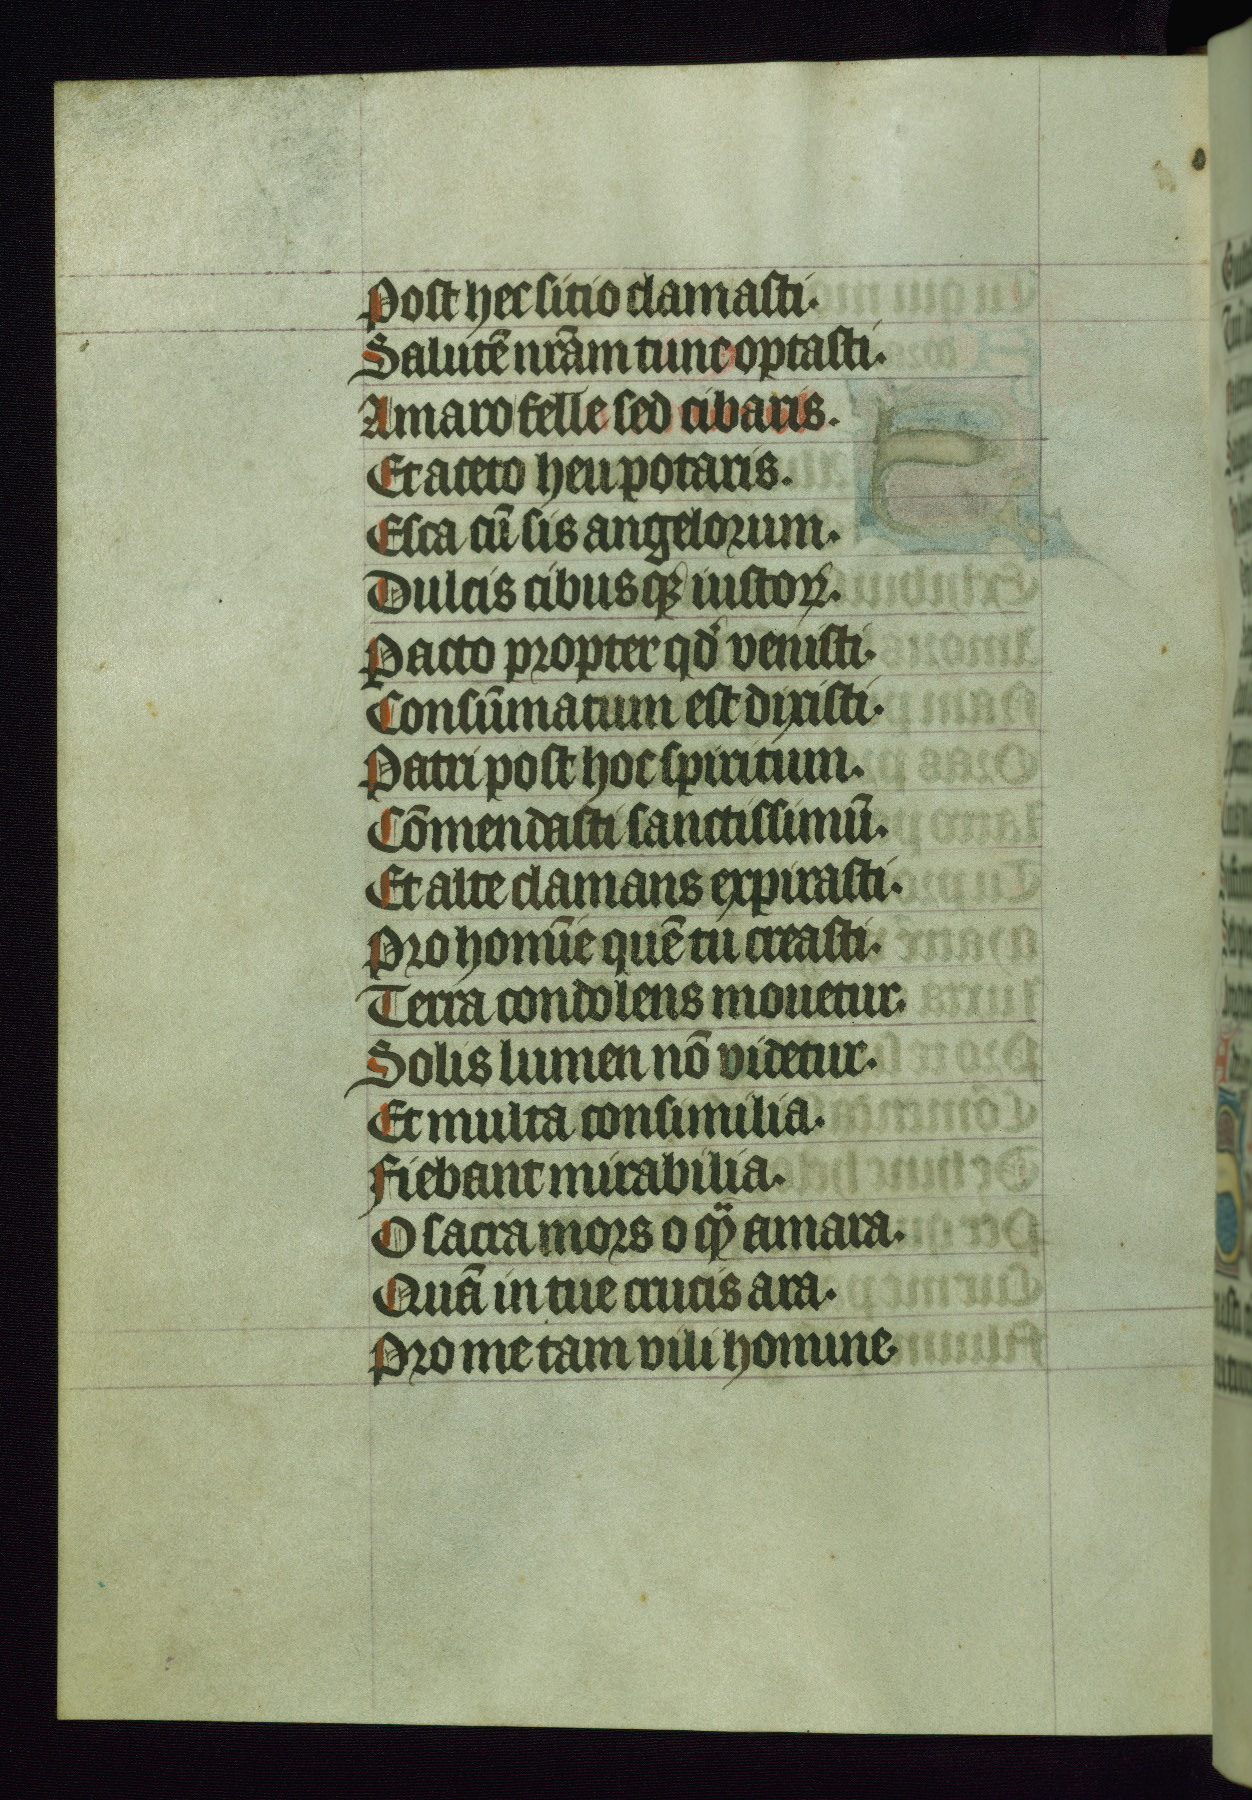 Post hec sitio clamasti.
Salutē nr̄am tunc optasti.
Amaro felle sed cibaris.
Et aceto heu potaris.
Esca cū sis angelorum.
Dulcis cibusqꝫ iustoꝝ.
Pacto propter qď venisti.
Consūmatum est dixisti.
Patri post hoc spiritum.
Cōmendasti sanctissimū.
Et alte clamans expirasti.
Pro homīe quē tu creasti.
Terra condolens mouetur.
Solis lumen nō videtur.
Et multa consimilia.
Fiebant mirabilia.
O sacra mors o qͣꝫ amara.
Quā in tue crucis ara.
Pro me tam vili homine